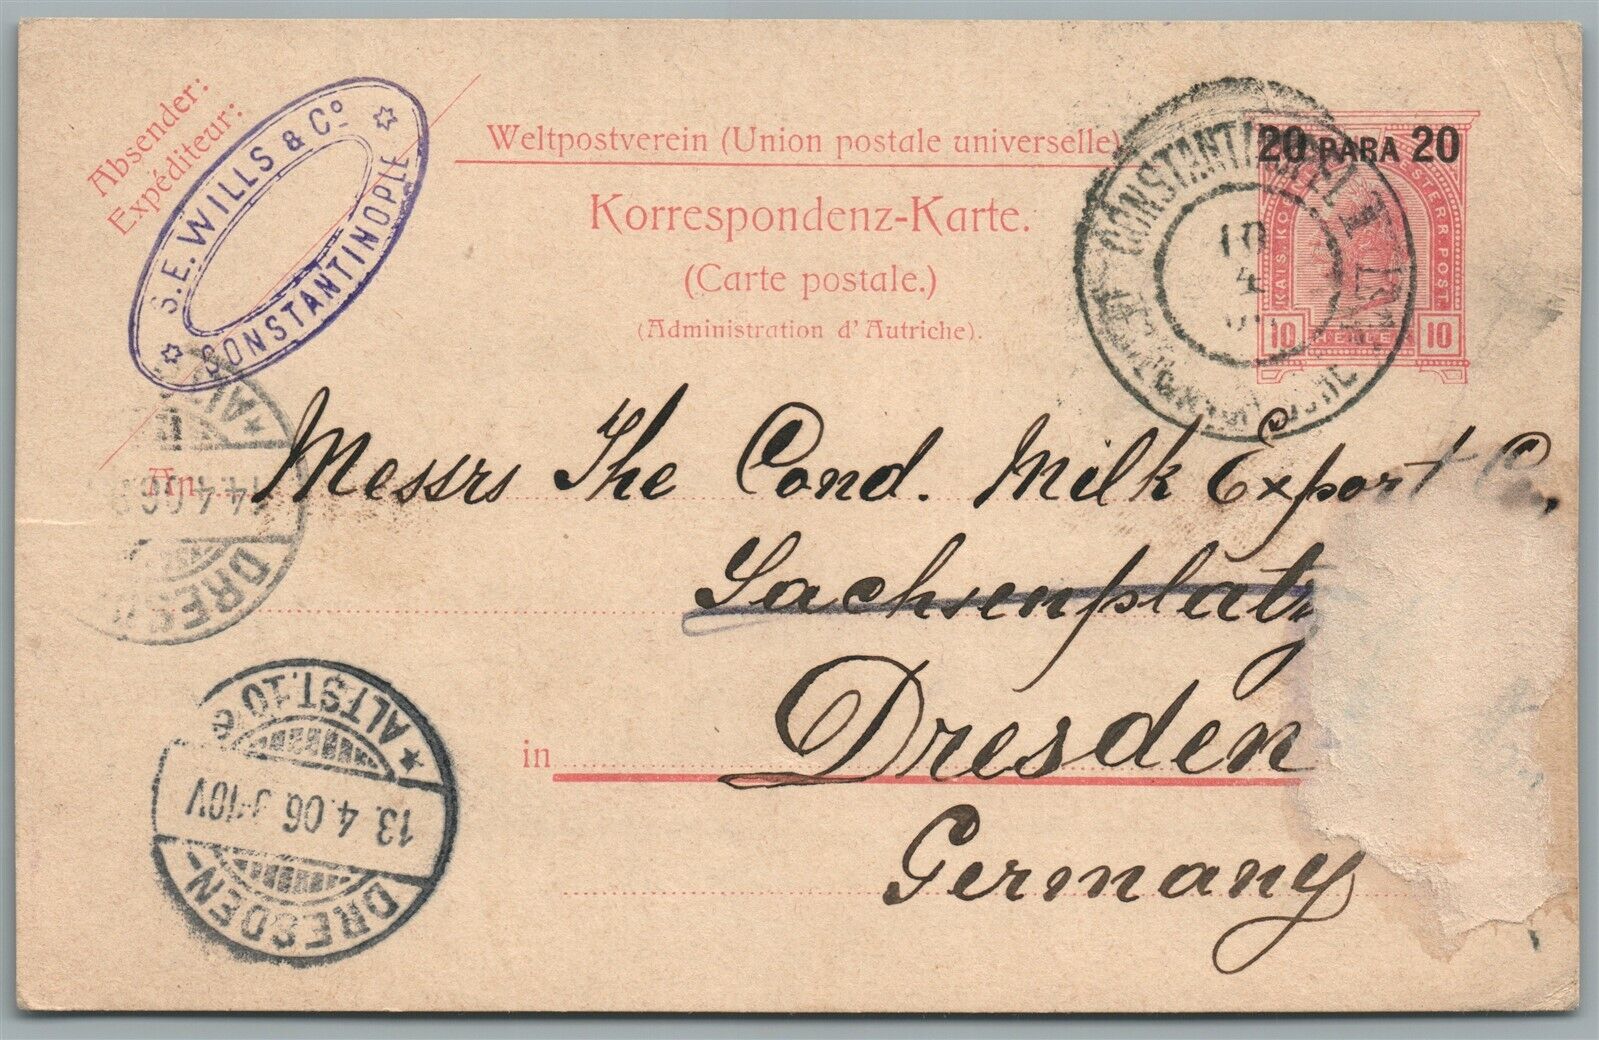 Absender:
Expéditeur:
S.E. WILLS & Cº
CONSTANTINOPLE
Weltpostverein (Union postale universelle)
Korrespondenz-Karte.
(Carte postale.)
(Administration d'Autriche).
CONSTANTINOPEL I
10
4
20 PARA 20
KAIS. KÖN. ÖSTERR. POST.
10 HELLER 10
An
Messrs The Cond. Milk Export Co,
Sachsenplatz
in Dresden
Germany
DRESDEN
14.4.06
DRESDEN-
13.4.06
10V
* ALTST.10 e